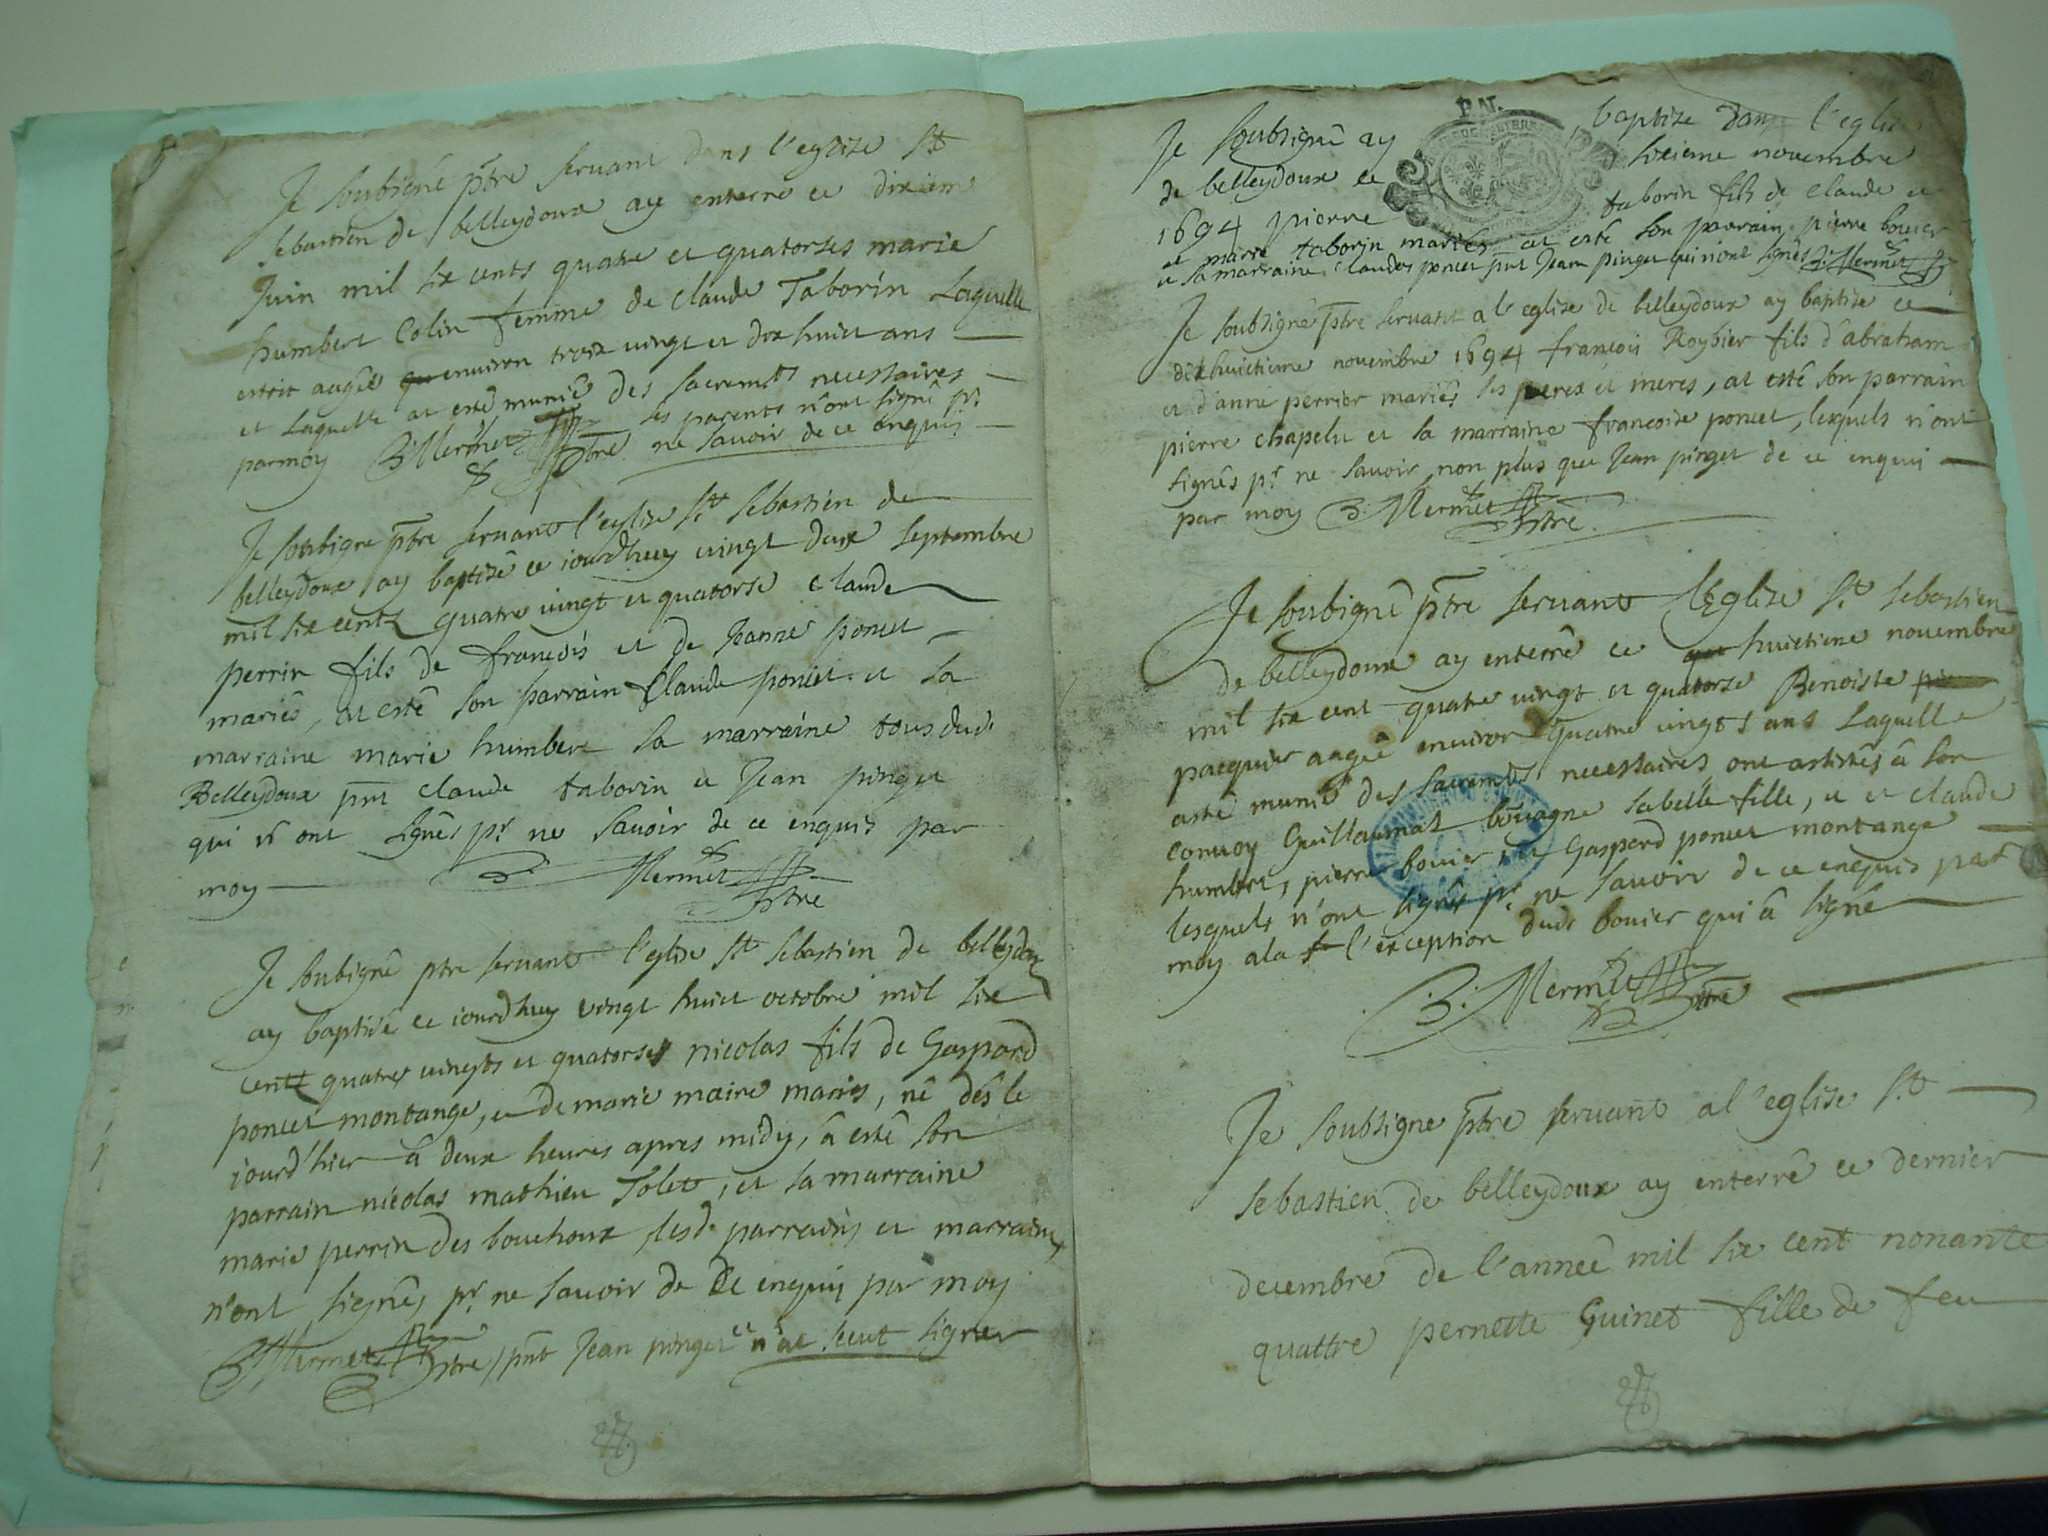 Je soubsigné ptre servant dans l'eglize St
sebastien de belleydoux ay enterré ce dixiem
Juin mil six cents quatre et quatorses marie
humbert Colin femme de claude Taborin Laquelle
estoit augée environ troix vingt et dix huict ans
et Laquelle at esté munie des sacremts necessaires
ses parents n'ont signé pr
parmoy B Mermet ptre ne savoir de ce enquis
Je soubsigne ptre servant l'eglize St sebastien de
belleydoux ay baptizé ce iourdhuy vingt deux septembre
mil six centz quatre vingt et quatorse claude
perrin fils de francois et de Jeanne poncet
mariés, at esté son parrain Claude poncet et sa
marraine marie humbert sa marraine tous dud:
Belleydoux pnt claude taborin et Jean pinget
qui n'ont signés pr ne savoir de ce enquis par
moy B. Mermet ptre
Je soubigné ptre servant l'eglize St sebastien de belleydoux
ay baptisé ce iourdhuy vingt huict octobre mil six
centz quatres vingts et quatorses nicolas fils de Gaspard
poncet montange, et de marie maire mariés, né dés le
iourd'hier â deux heures apres midy, â esté son
parrain nicolas mathieu Tolet, et sa marraine
marie perrin des bouchoux, lesd. parrains et marraines
n'ont signés pr ne savoir de ce enquis par moy
B Mermet ptre, pnt Jean pinget et n'at sceut signer
Je soubsigné ay baptize dans l'eglize
de belleydoux ce sixieme novembre
1694 pierre taborin fils de claude et
de marie taborin mariés at esté son parrain pierre bouier
et sa marraine claudes poncet pnt Jean pinget qui n'ont signés B. Mermet
Je soubsigné ptre servant a l'eglize de belleydoux ay baptize ce
dixhuictieme novembre 1694 francois Roybier fils d'abraham
et d'anne perrier mariés ses peres et meres, at esté son parrain
pierre chapelu et sa marraine francoise poncet, lesquels n'ont
signés pr ne savoir non plus que Jean pinget de ce enqui
par moy B. Mermet ptre
Je soubigné ptre servant l'Eglize St sebastien
de belleydoux ay enterré ce huictieme novembre
mil six cent quatre vingt et quatorse Benoiste
pacquier augée environ quatre vingts ans Laquelle
asté munie des sacremts necessaires ont assistés â son
convoy Guillaumat bouagne sabelle fille, et et claude
humbert, pierre bouier, et Gaspard poncet montange
lesquels n'ont signés pr ne savoir de ce enquis par
moy ala l'exception dud: bouier qui â signé
B. Mermet ptre
Je soubsigne ptre servant a l'eglise St
sebastien de belleydoux ay enterré ce dernier
decembre de l'année mil six cent nonante
quattre pernette Guinet fille de feu